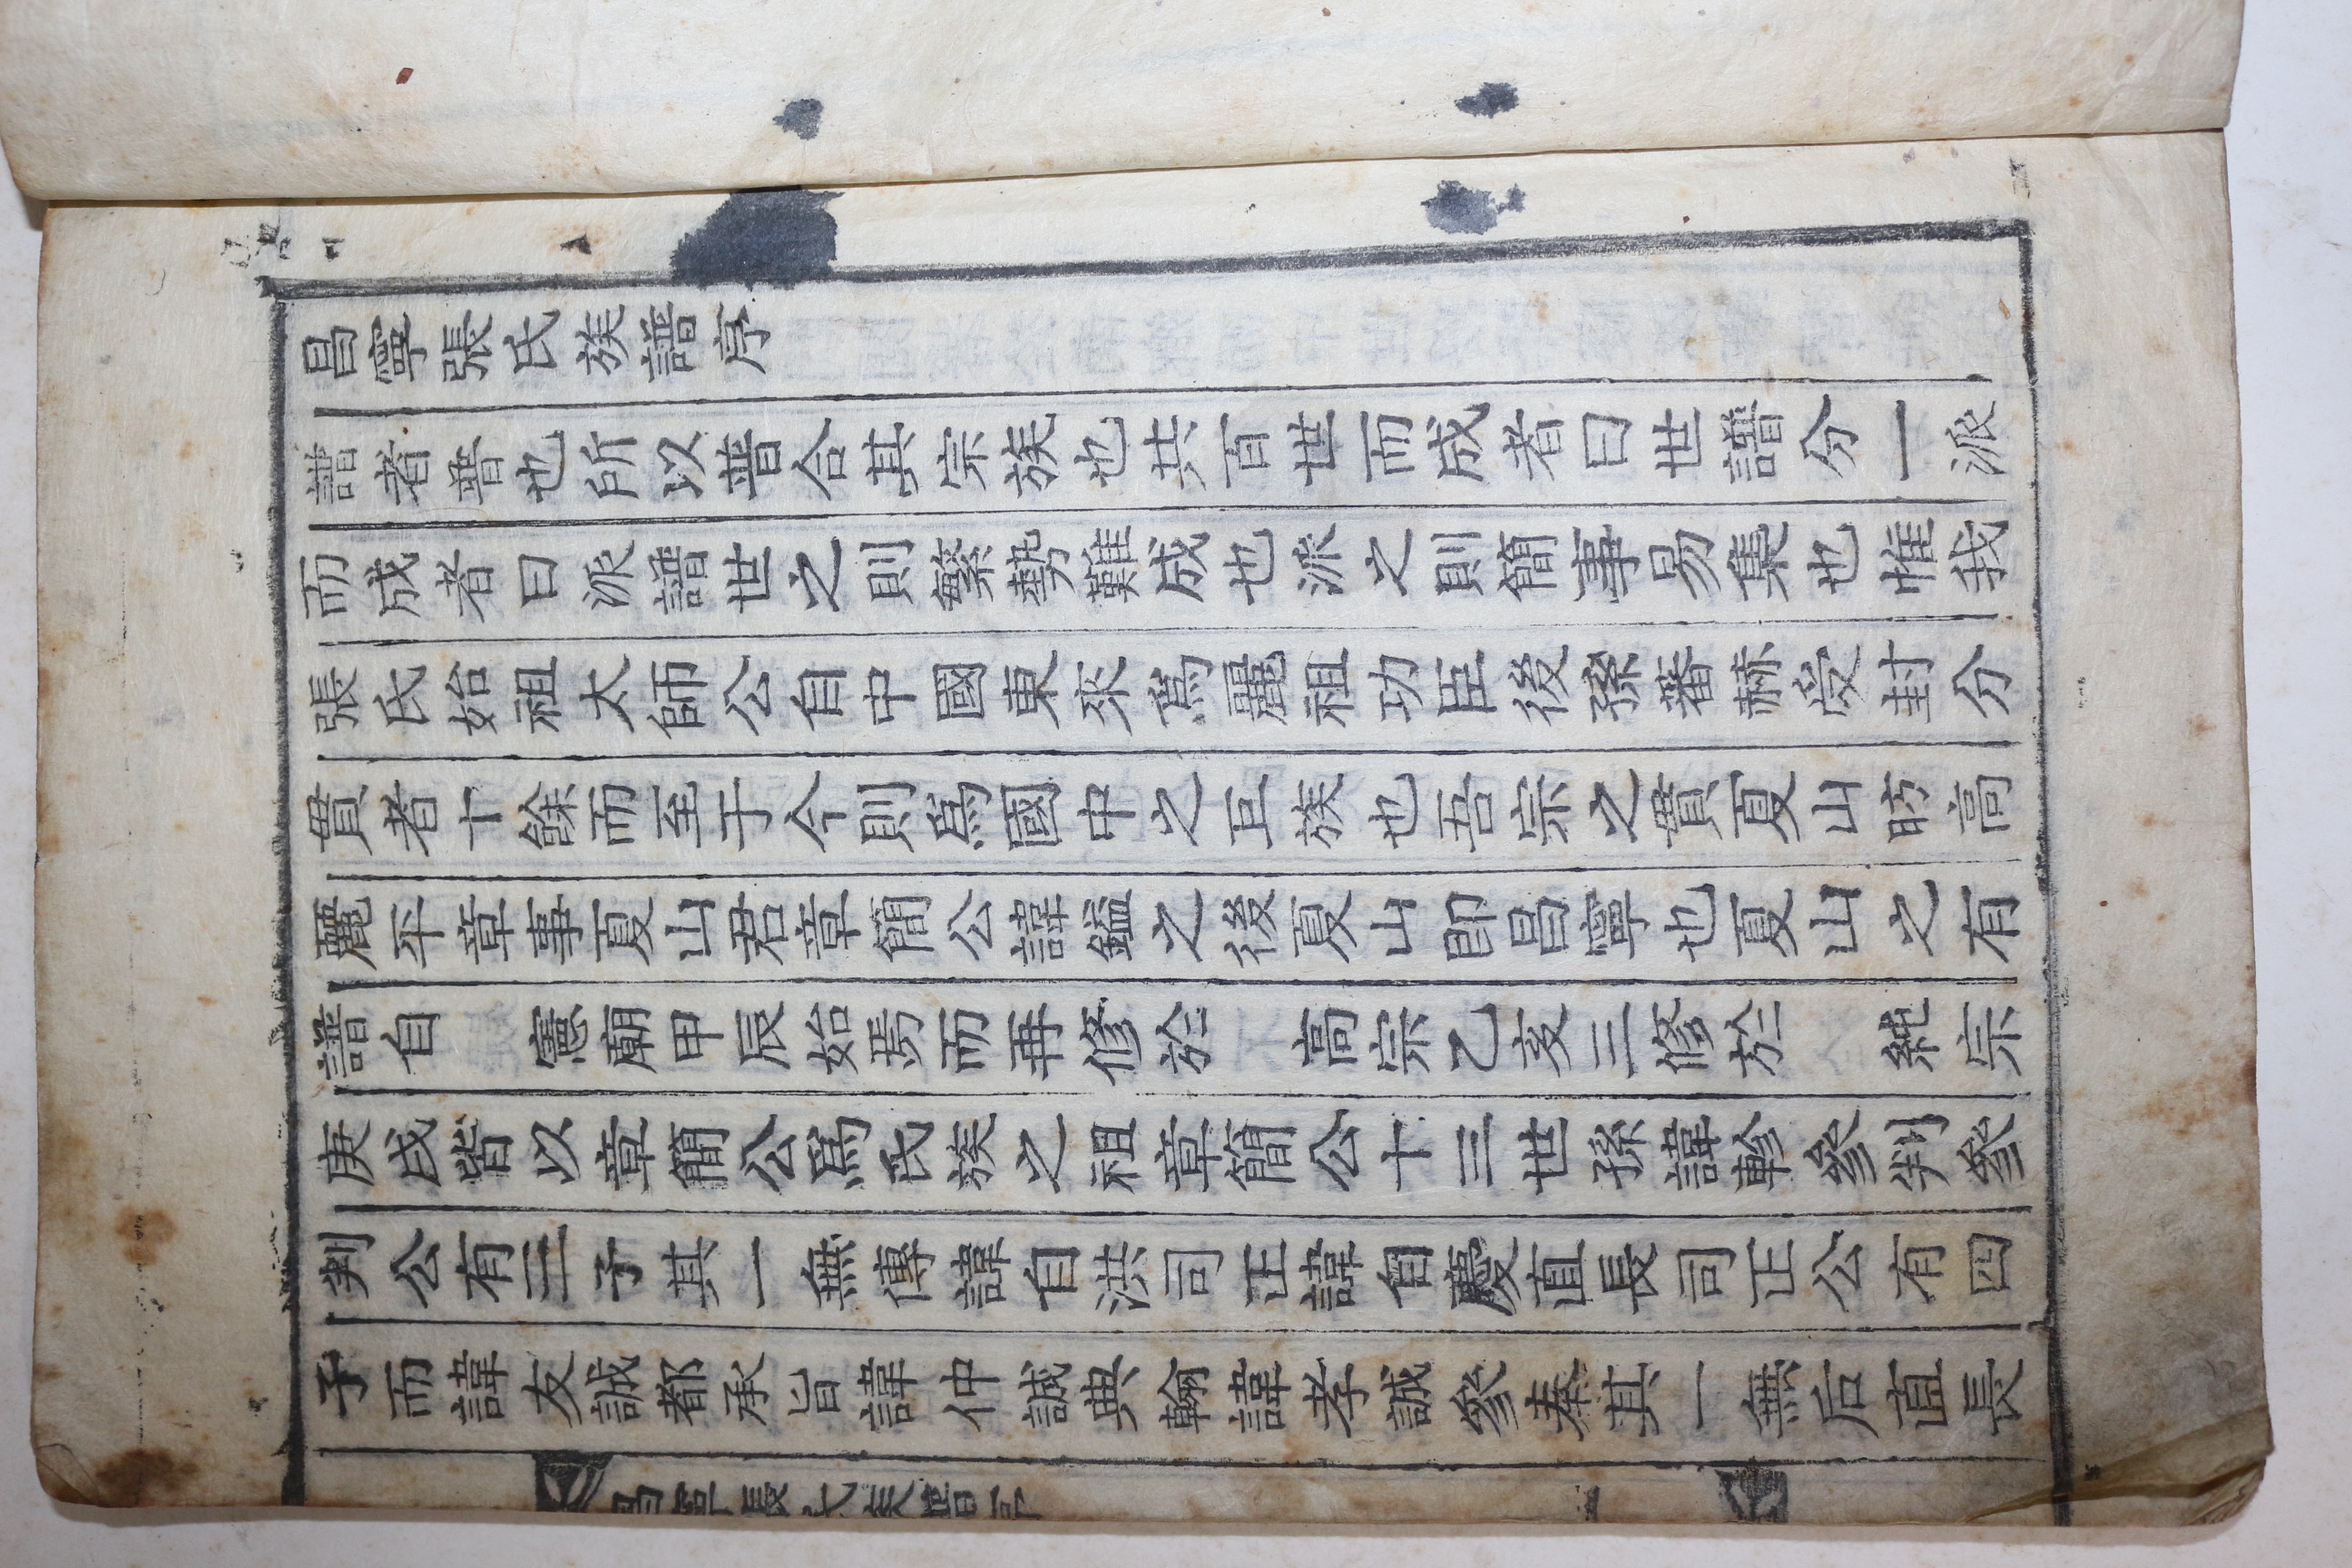 昌寧張氏族譜序
譜者普也所以普合其宗族也共百世而成者曰世譜分一派
而成者曰派譜世之則繁勢難成也派之則簡事易集也惟我
張氏始祖太師公自中國東來爲麗祖功臣後孫蕃赫受封分
貫者十餘而至于今則爲國中之巨族也吾宗之貫夏山昉高
麗平章事夏山君章簡公諱鎰之後夏山卽昌寧也夏山之有
譜自 憲廟甲辰始焉而再修於 高宗乙亥三修於 純宗
庚戌皆以章簡公爲氏族之祖章簡公十三世孫諱軫叅判叅
判公有三子其一無傳諱自洪司正諱自慶直長司正公有四
子而諱友誠都承旨諱仲誠典翰諱孝誠叅奉其一無后直長
昌寧張氏族譜序 一